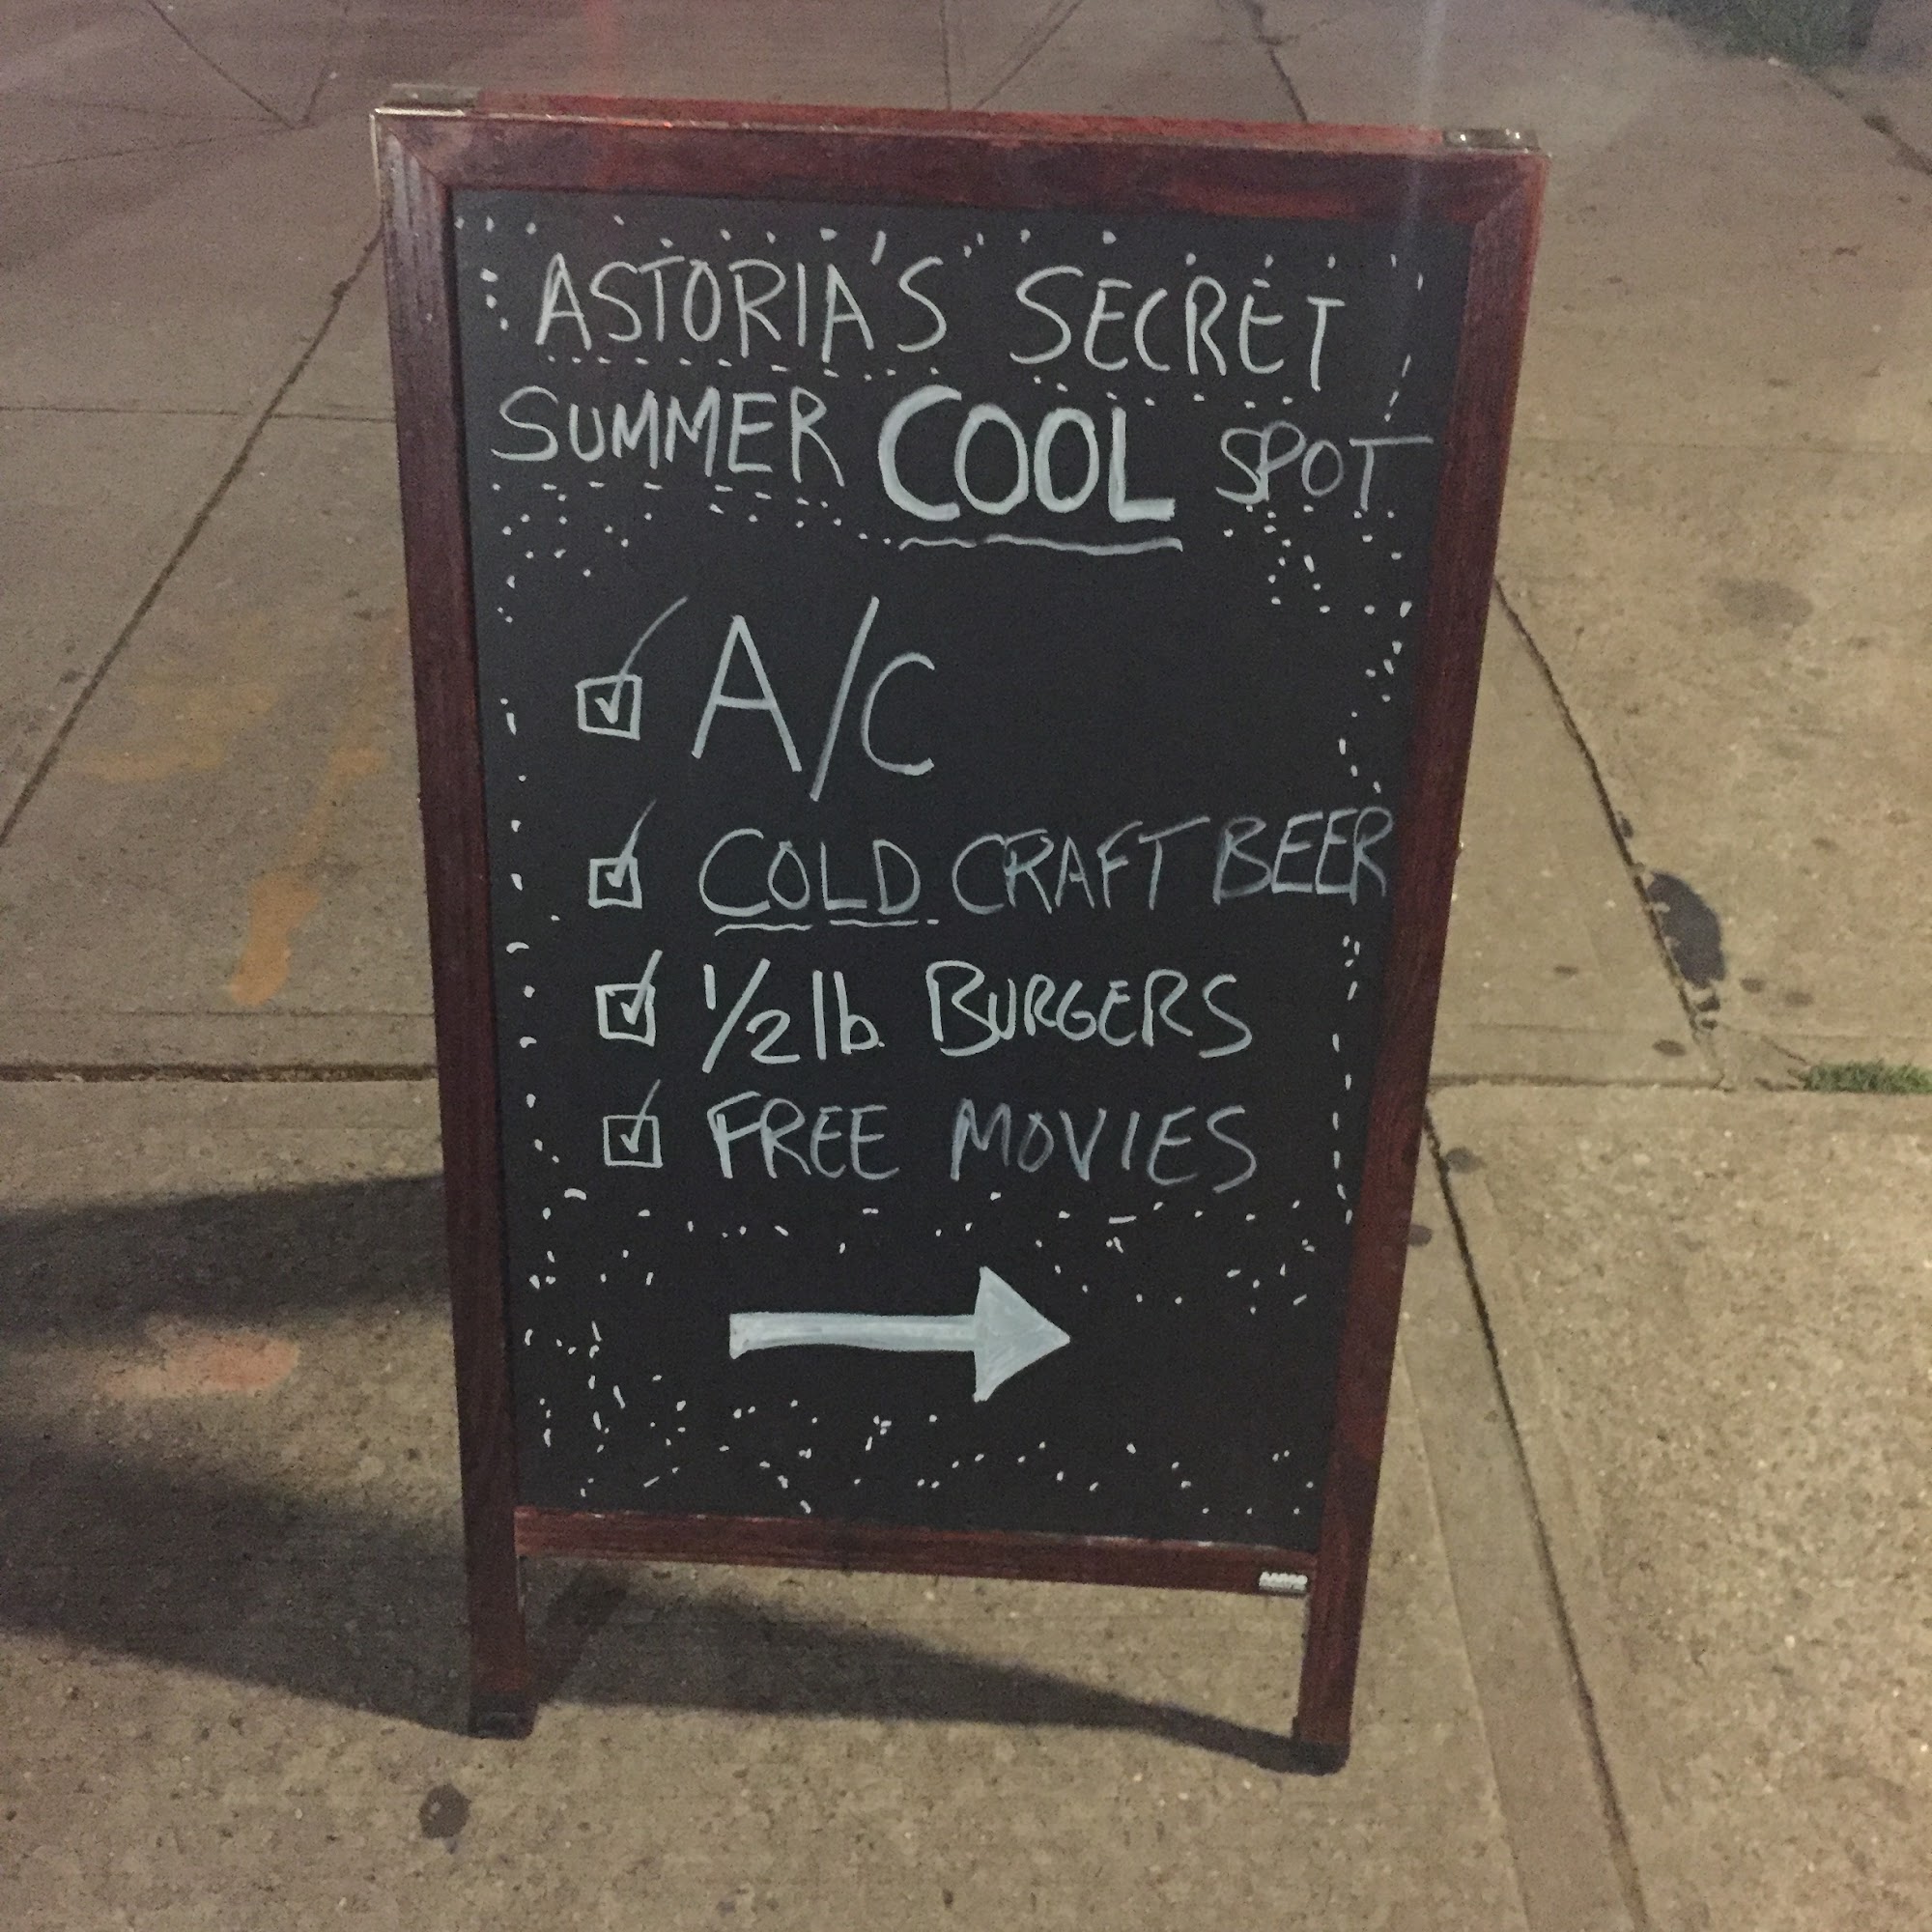 ASTORIA'S SECRET
SUMMER COOL SPOT
A/C
COLD CRAFT BEER
1/2 lb BURGERS
FREE MOVIES